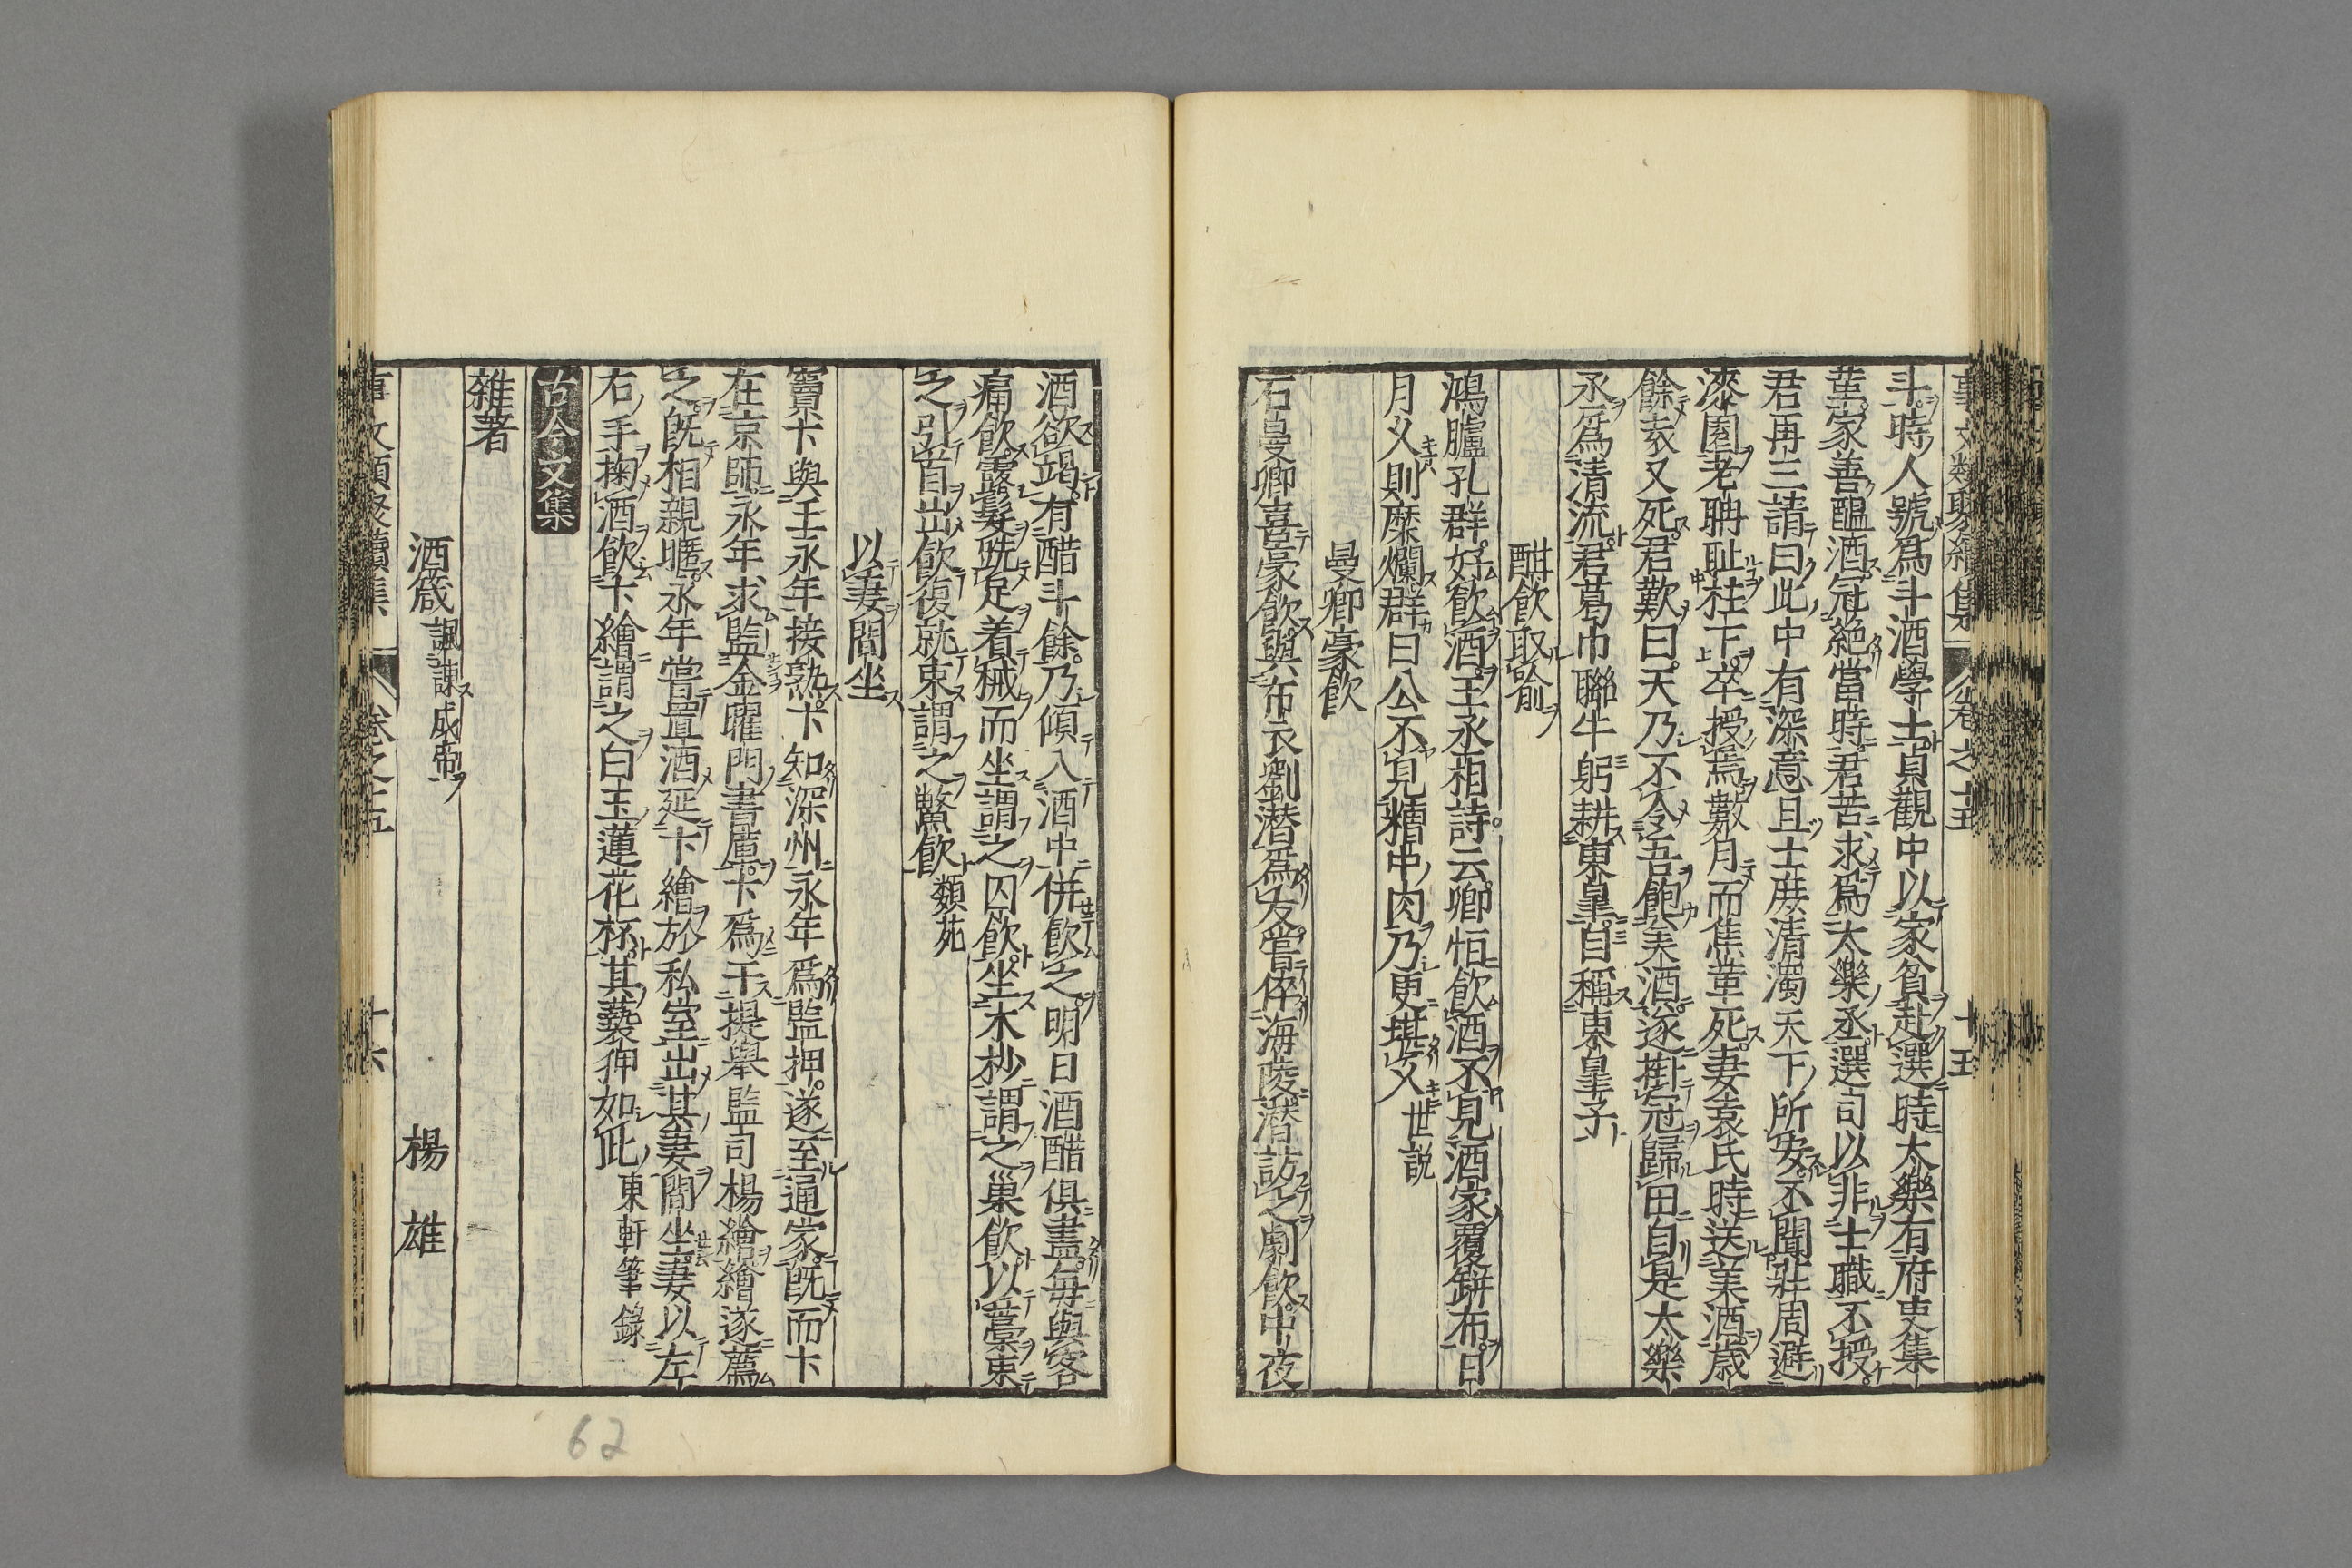 事文類聚續集 卷之十五 十五
斗時人號爲斗酒學士貞觀中以家貧赴選時太樂有府吏集
革家善醖酒冠絶當時君苦求爲太樂丞選司以非士職不授
君再三請曰此中有深意且士庶清濁天下所安不聞莊周避
漆園老聃耻柱下卒授焉數月而焦革死妻袁氏時送美酒歳
餘袁又死君歎曰天乃不令吾飽美酒遂掛冠歸田自是太樂
丞爲清流君葛巾聯牛躬耕東皐自稱東皐子
酣飲取喻
鴻臚孔群好飲酒王丞相詩云卿恒飲酒不見酒家覆缾布日
月乂則糜爛群曰公不見糟中肉乃更堪乂 世説
曼卿豪飲
石曼卿喜豪飲與布衣劉潜爲友嘗倅海陵潜訪之劇飲中夜
酒欲竭有醋斗餘乃傾入酒中併飲之明日酒醋俱盡毎與客
痛飲露髮跣足着械而坐謂之囚飲坐木杪謂之巢飲以藁束
之引首出飲復就束謂之鱉飲 類苑
以妻間坐
竇卞與王永年接熟卞知深州永年爲監押遂至通家既而卞
在京師永年求監金曜門書庫卞爲干提舉監司楊繪繪遂薦
之既相親暱永年嘗置酒延卞繪於私室出其妻間坐妻以左
右手掬酒飲卞繪謂之白玉蓮花杯其褻狎如此 東軒筆録
古今文集
雜著
酒箴 諷諫成帝 楊雄
事文類聚續集 卷之十五 十六